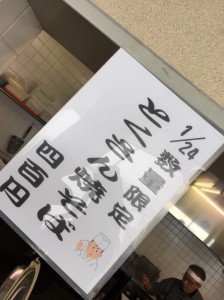 1/24
数量限定
よくまん焼そば
四百円